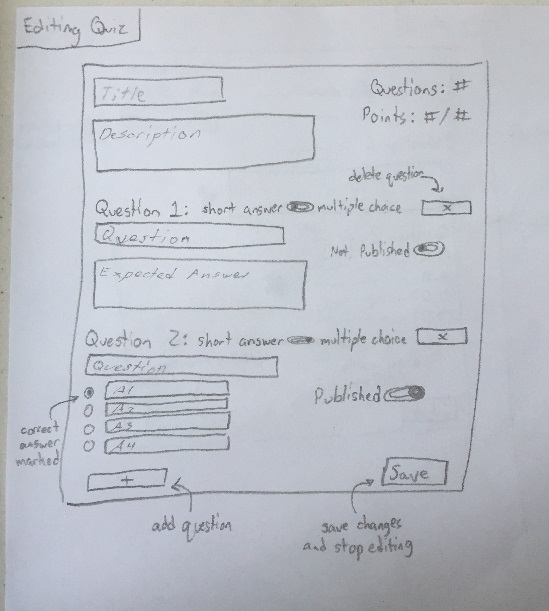 Editing Quiz
Title
Questions: #
Points: #/#
Description
delete question
Question 1: short answer multiple choice x
Question
Not Published
Expected Answer
Question 2: short answer multiple choice x
Question
A1
Published
A2
A3
A4
correct
answer
marked
+
Save
add question
save changes
and stop editing